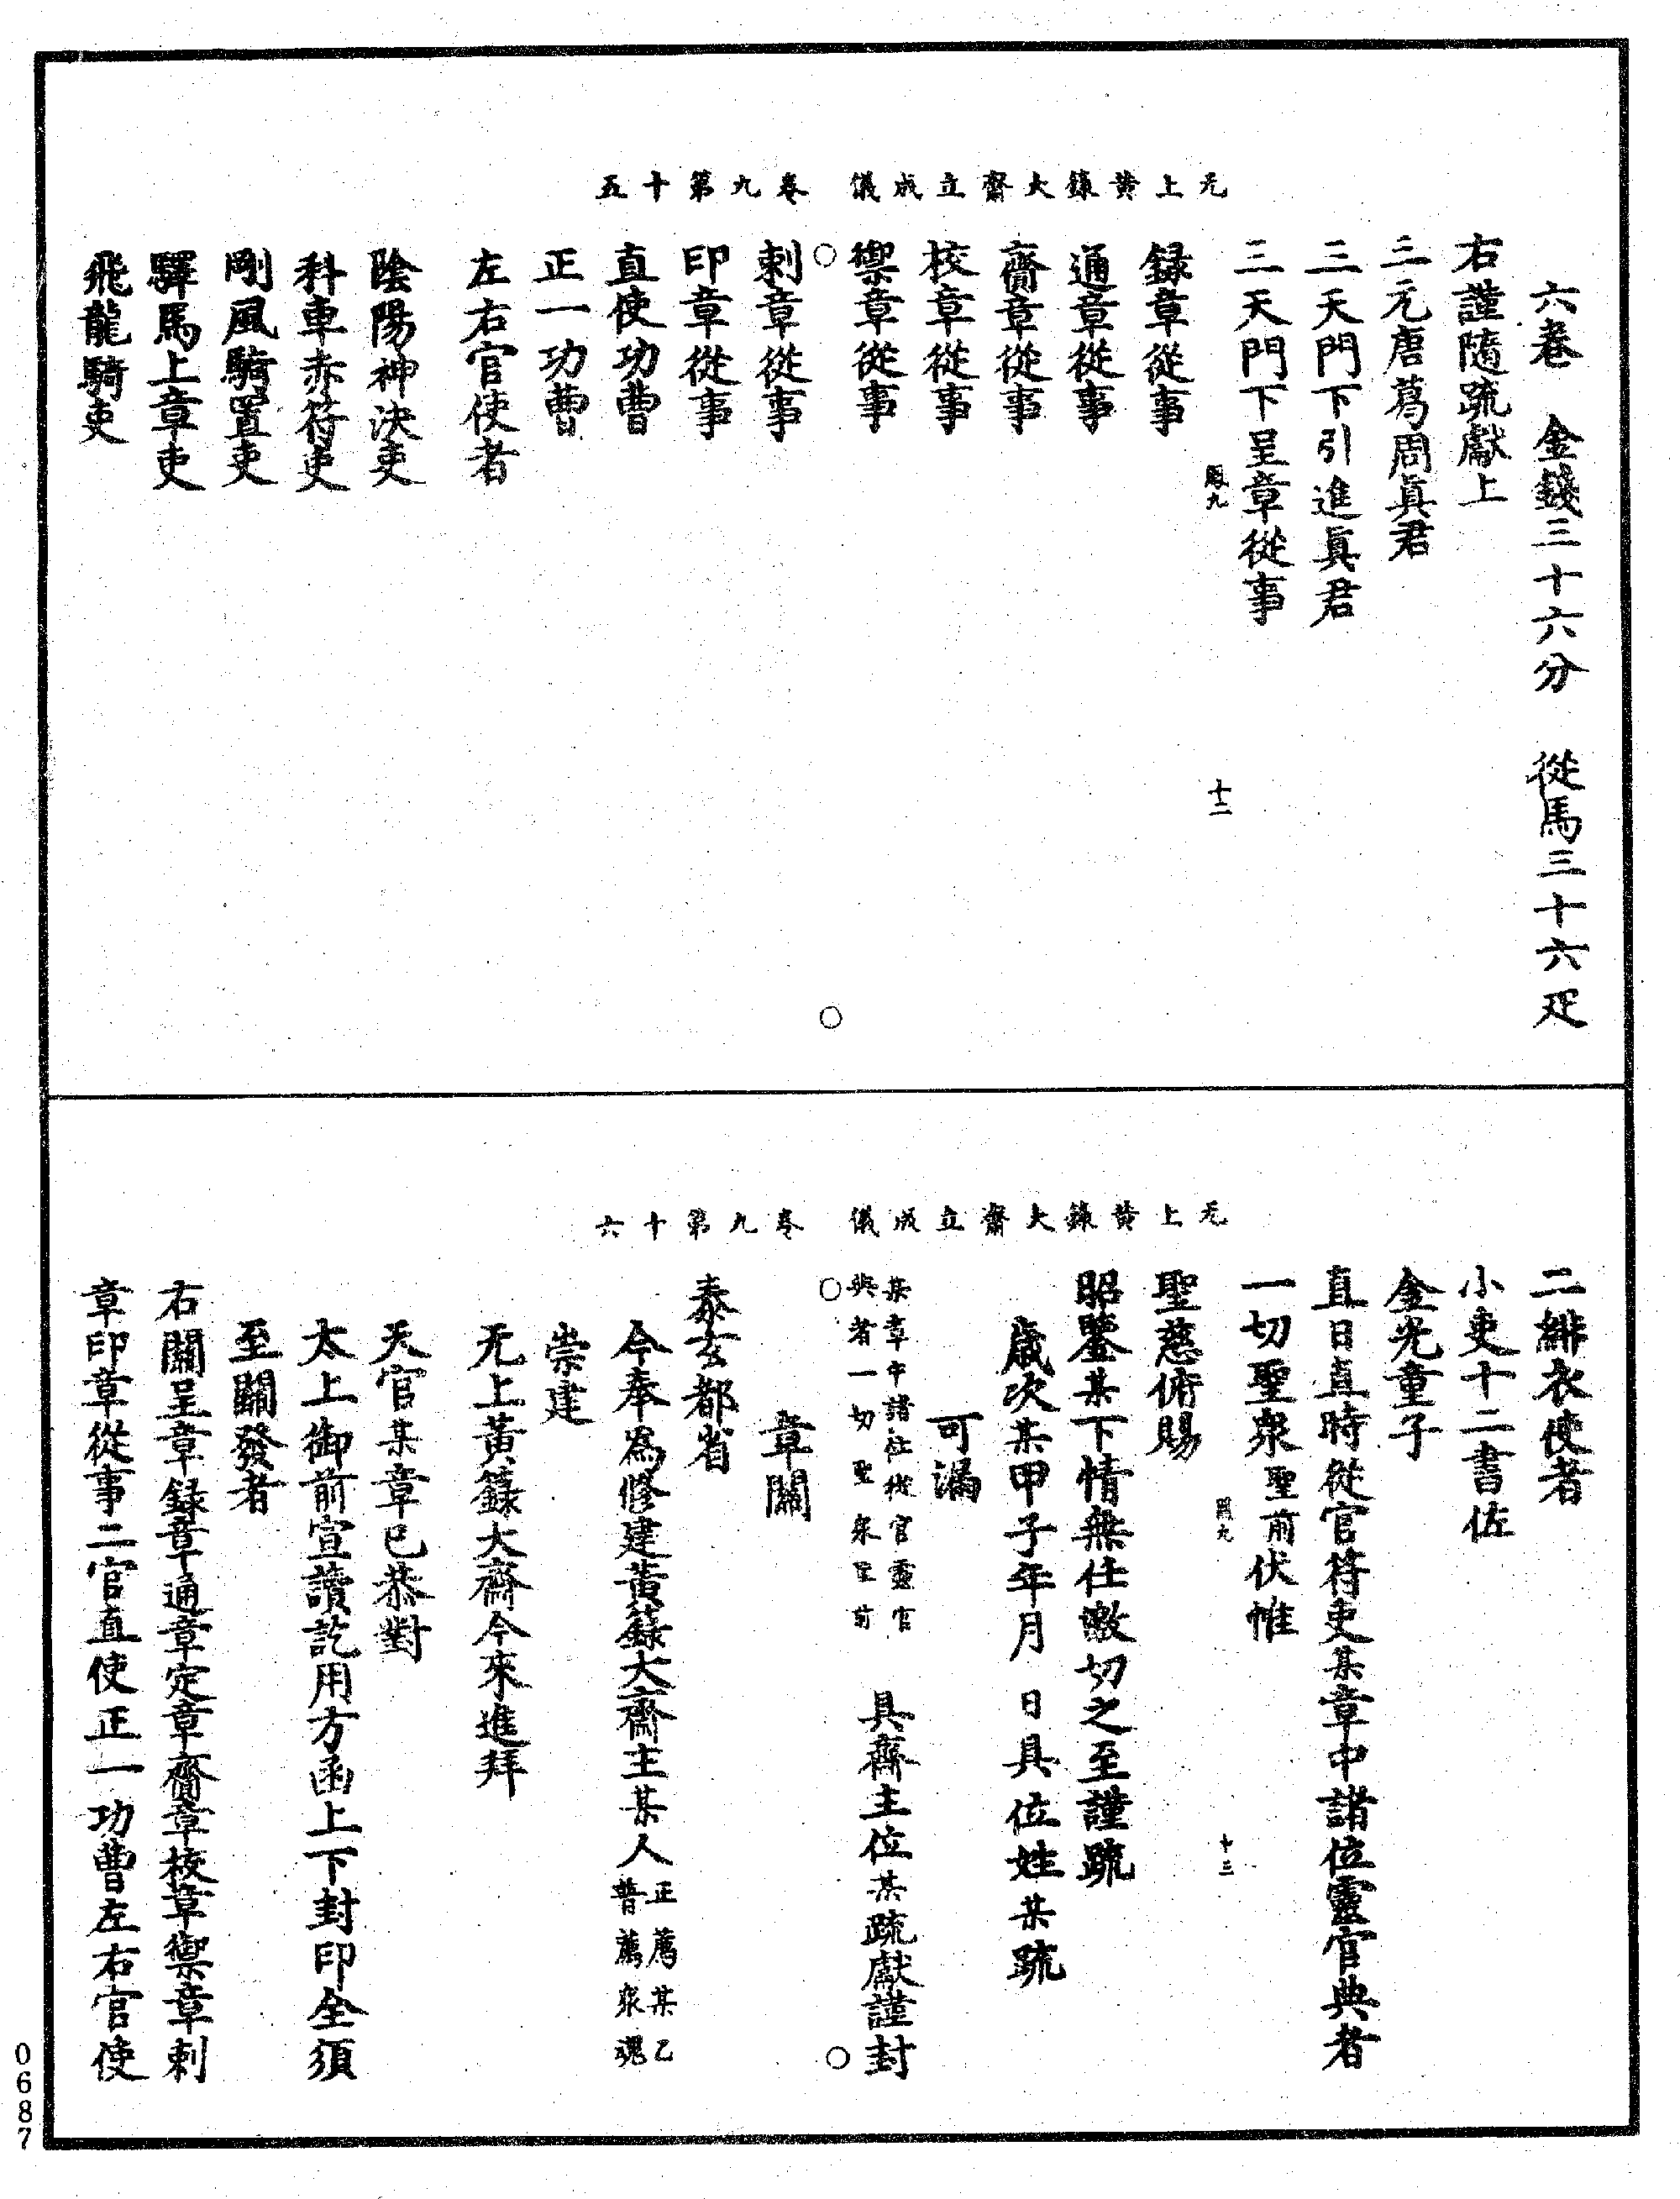 无上黃籙大齋立成儀　卷九第十五
六卷　金錢三十六分　從馬三十六疋
右謹隨疏獻上
三元唐葛周眞君
三天門下引進眞君
三天門下呈章從事
十二
錄章從事
通章從事
齎章從事
校章從事
禦章從事
刺章從事
印章從事
直使功曹
正一功曹
左右官使者
陰陽神決吏
科車赤符吏
剛風騎置吏
驛馬上章吏
飛龍騎吏
无上黃籙大齋立成儀　卷九第十六
二緋衣使者
小吏十二書佐
金光童子
直日直時從官符吏某章中諸位靈官典者
一切聖衆聖前伏惟
十三
聖慈俯賜
昭鑒某下情無任激切之至謹疏
歲次某甲子年月　日具位姓某疏
可漏
某章中諸位從官靈官
典者一切聖衆聖前
具齋主位某疏獻謹封
章關
泰玄都省
今奉爲修建黃籙大齋主某人
正薦某乙
普薦衆魂
崇建
无上黃籙大齋今來進拜
天官某章已恭對
太上御前宣讀訖用方函上下封印全須
至關發者
右關呈章錄章通章定章齎章校章禦章刺
章印章從事二官直使正一功曹左右官使
0687